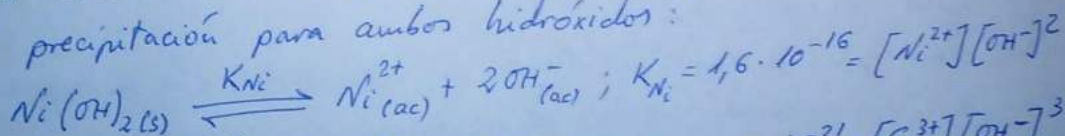 precipitación para ambos hidróxidos:
Ni(OH)₂(s) ⇌ Ni²⁺(ac) + 2OH⁻(ac) ; K_Ni = 1,6·10⁻¹⁶ = [Ni²⁺][OH⁻]²
K_Ni
[OH⁻]³